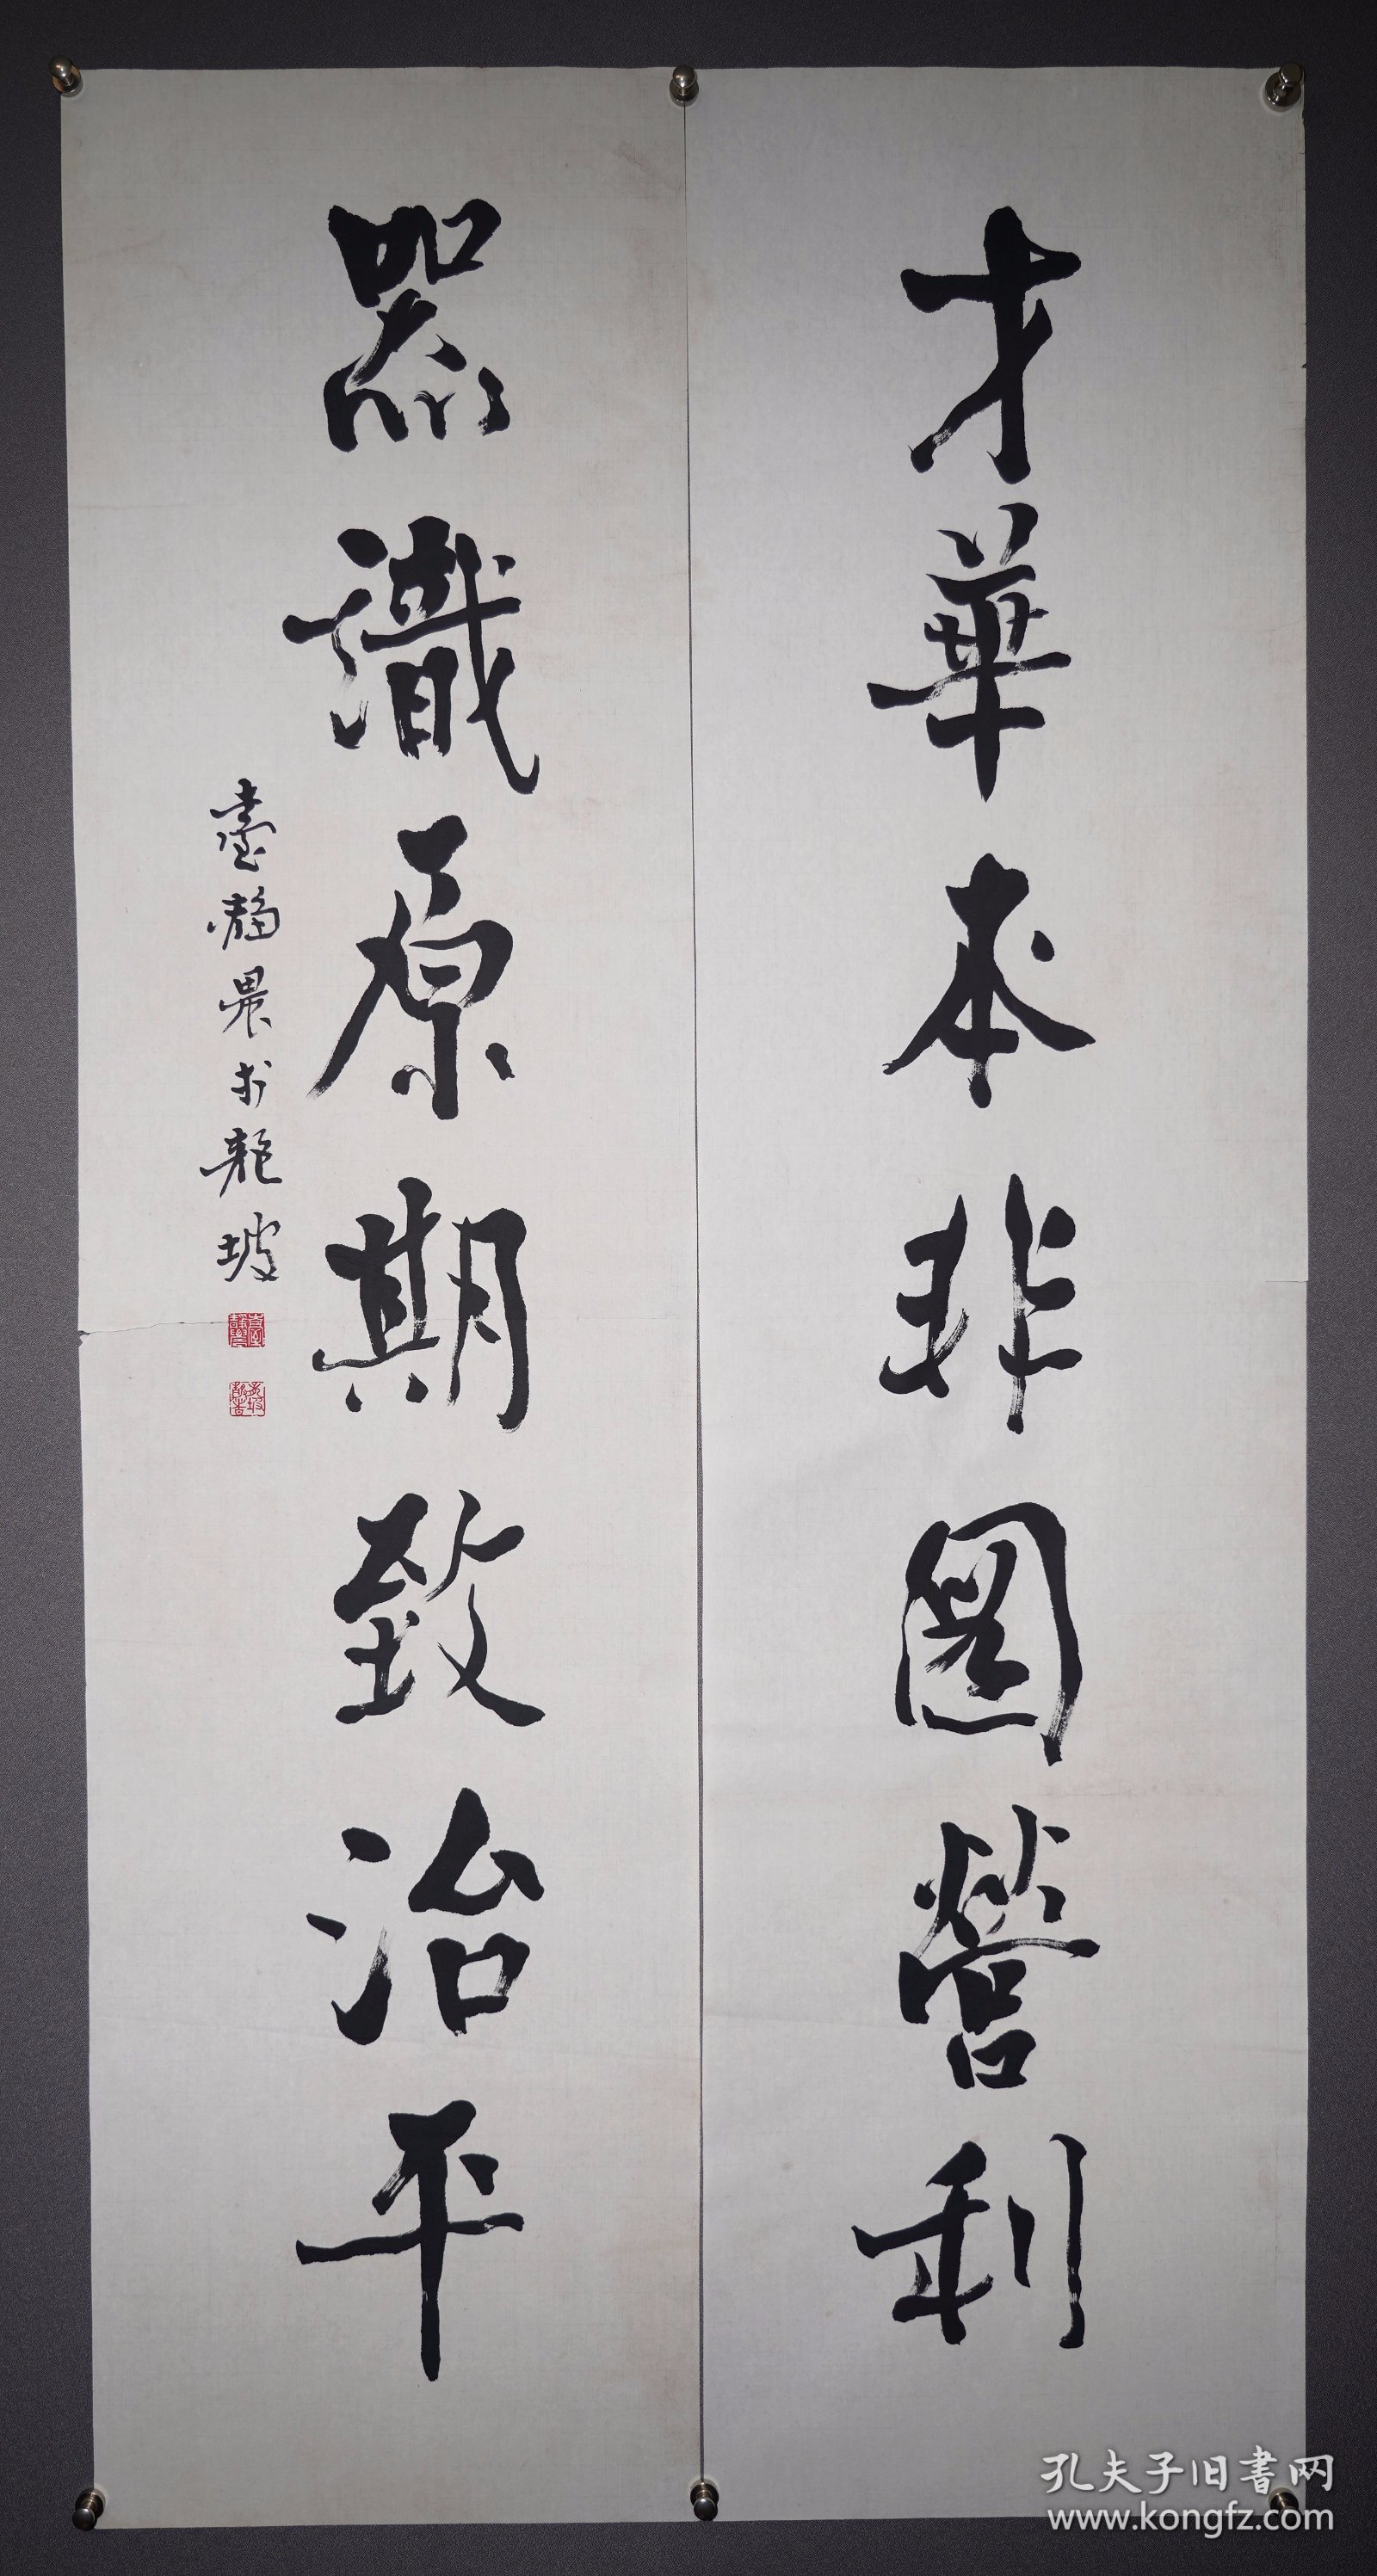 才華本非圖營利
器識原期致治平
臺靜農于龍坡
孔夫子旧書网
www.kongfz.com